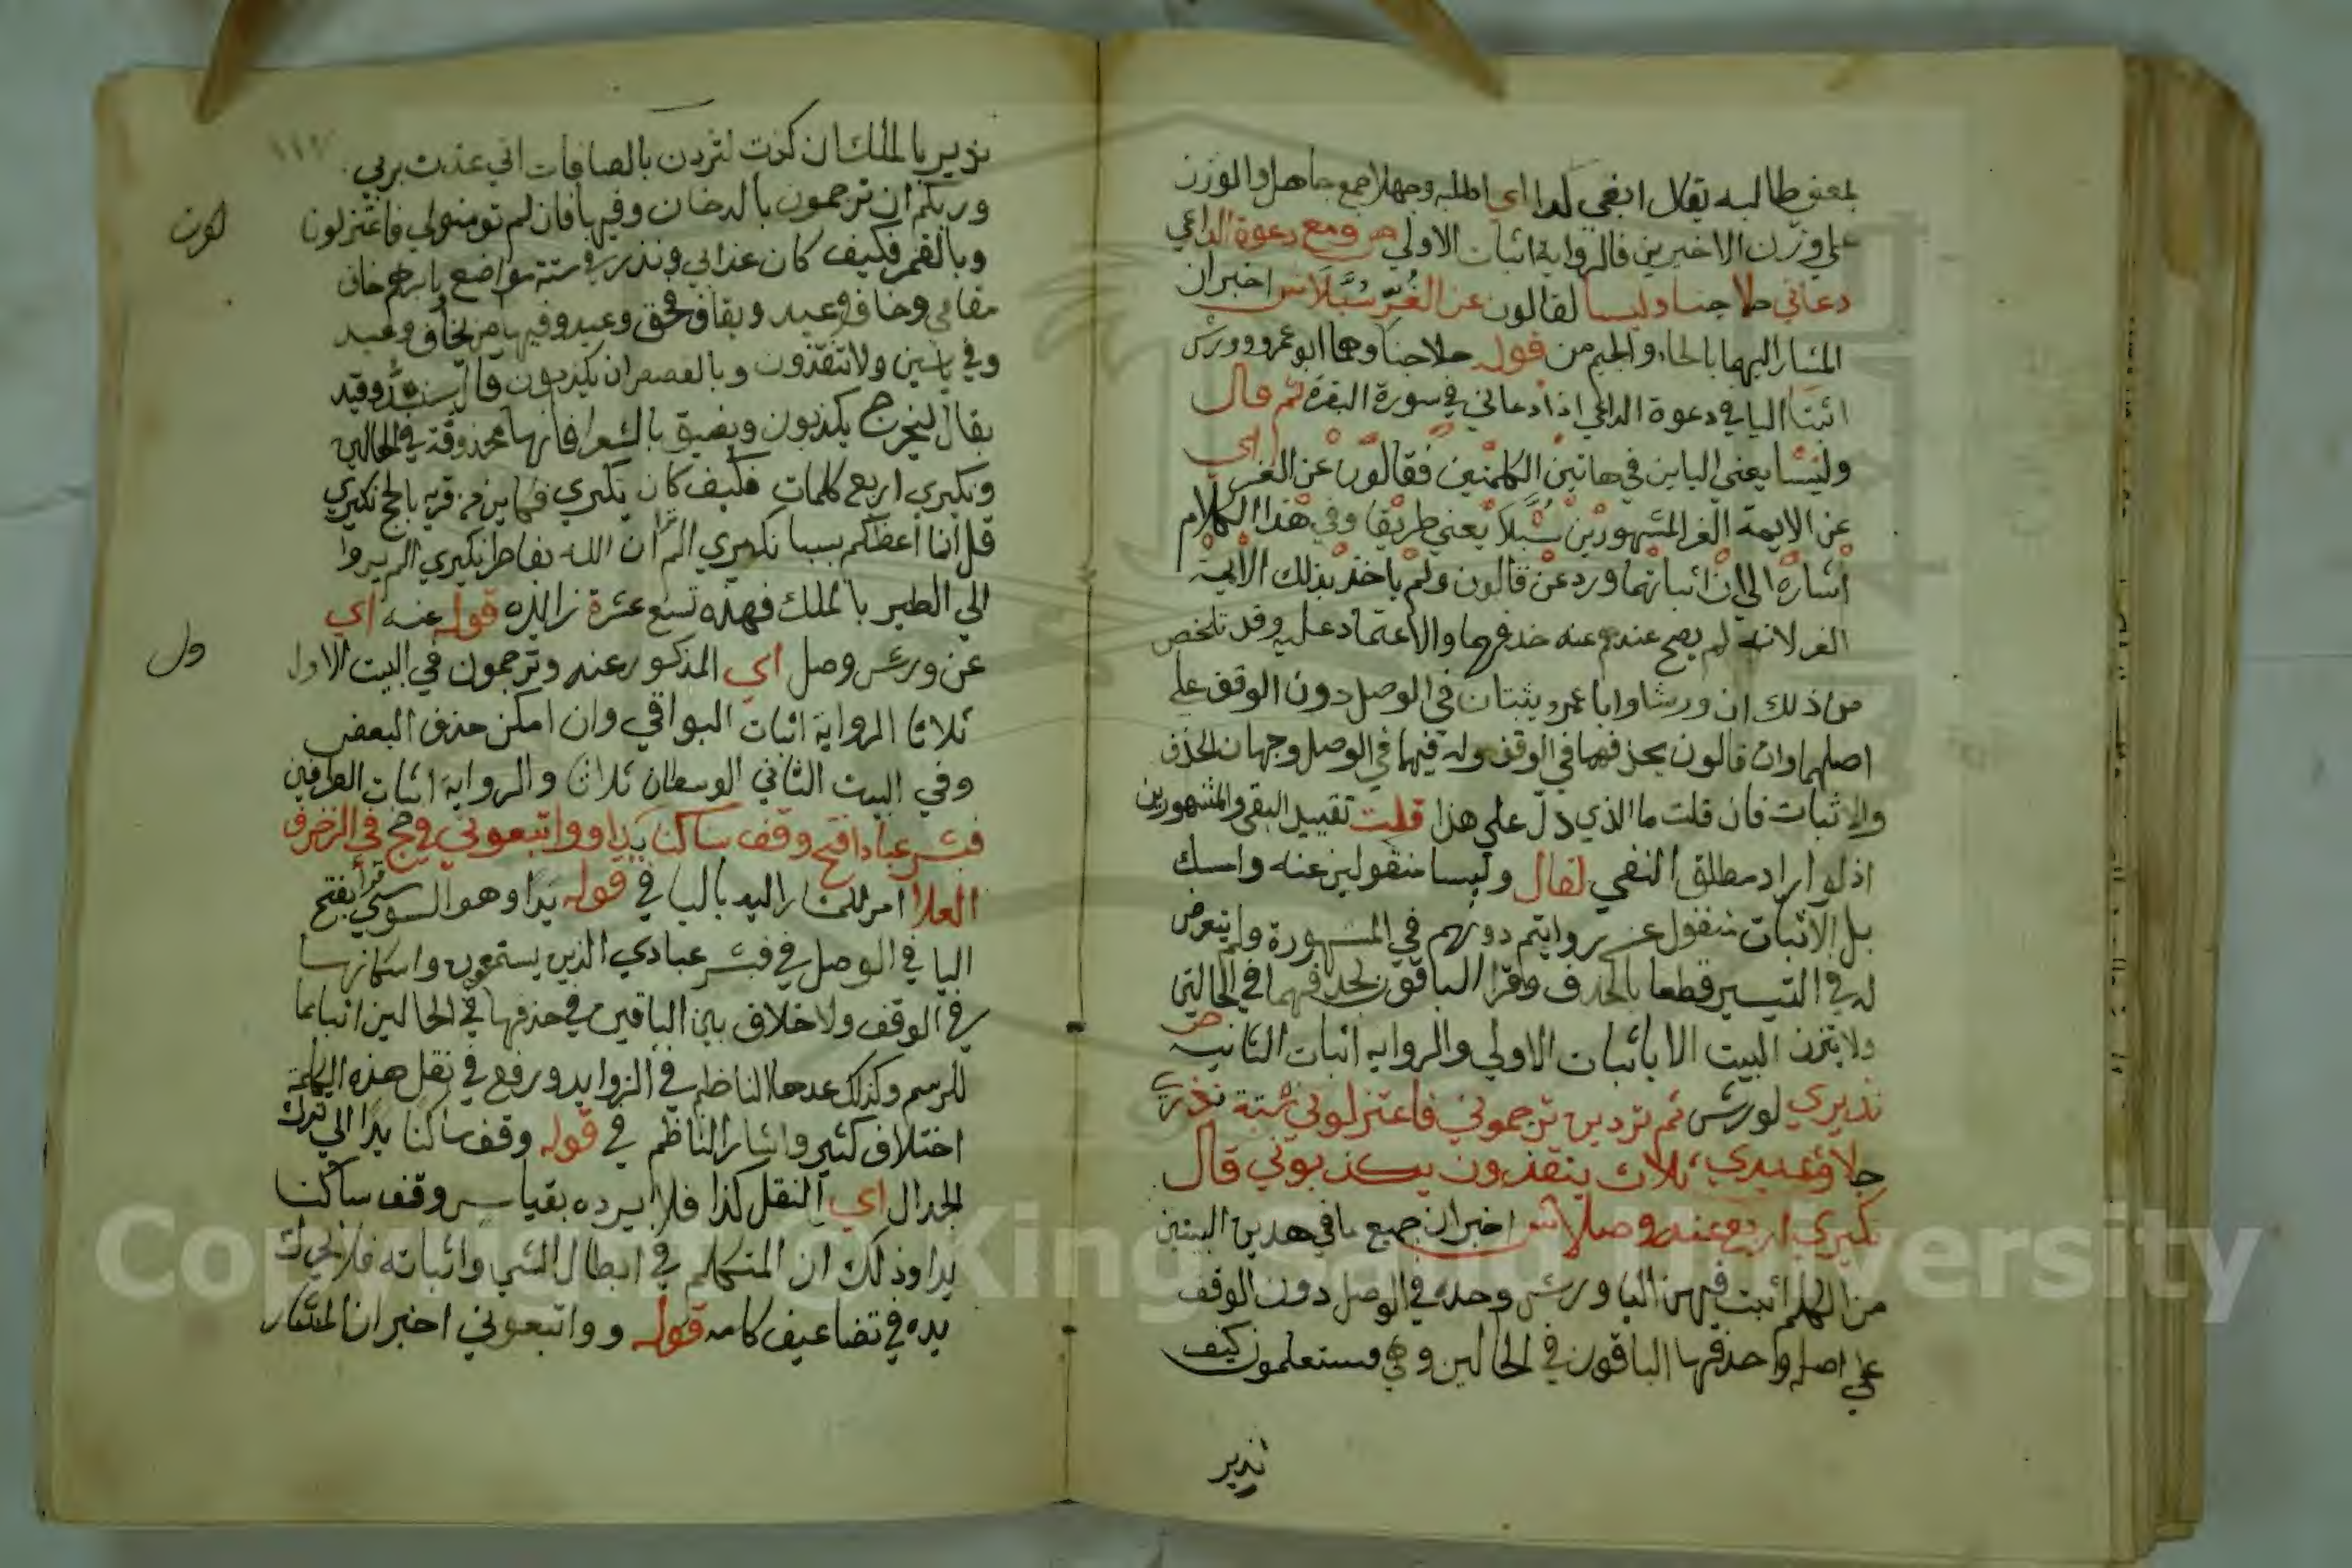 بمعنى طالبه يقال ابغى كذا اي اطلبه وجهلا جمع جاهل والوزن
على وزن الاخيرين فالرواية اثبات الاولى ص ومع دعوة الداعي
دعاني حلا جنا وليسا لقالون عن الغر سبلا ش اخبر ان
المشار اليهما بالحاء والجيم من قوله حلا جنا وهما ابو عمرو وورش
اثبتا اليا في دعوة الداعي اذا دعاني في سورة البقرة ثم قال
وليسا يعني اليائين في هاتين الكلمتين فقالون عن الغر اي
عن الايمة الغر المشهورين سبلا يعني طريقا وفي هذا الكلام
اشارة الى ان اثباتهما ورد عن قالون ولم ياخذ بذلك الايمة
الغر لانه لم يصح عندهم عنه حذفهما والاعتماد عليه وقد تلخص
من ذلك ان ورشا وابا عمرو يثبتان في الوصل دون الوقف على
اصلهما وان قالون يحذفهما في الوقف وله فيهما في الوصل وجهان الحذف
والاثبات فان قلت ما الذي دل على هذا قلت تقييد النفي والمشهورين
اذ لو اراد مطلق النفي لقال وليسا منقولين عنه وامسك
بل الاثبات منقول عن رواتهم دونهم في المشهورة ولم يتعرض
له في التيسير قطعا بالحذف وقرا الباقون بحذفهما في الحالتين
ولا يتزن البيت الا باثبات الاولى والرواية اثبات الثانية ص
نذيري لورش ثم تردين ترجموني فاعتزلوني ستة نذري
جلا وعيدي ثلاث ينقذون يكذبوني قال
نكيري اربع عنه وصلا ش اخبر ان جميع ما في هذين البيتين
من الكلم اثبت فيهن اليا ورش وحده في الوصل دون الوقف
على اصله وحذفها الباقون في الحالين وهي فستعلمون كيف
نذير
نذير بالملك ان كدت لتردين بالصافات اني عذت بربي
وربكم ان ترجمون بالدخان وفيها فان لم تومنوا لي فاعتزلون
وبالقمر فكيف كان عذابي ونذر في ستة مواضع بابرهيم خاف
مقامي وخاف وعيد وبقاف فحق وعيد وفيها من يخاف وعيد
وفي ياسين ولا ينقذون وبالقصص ان يكذبون قال سنشد وقيد
بقال ليخرج يكذبون ويضيق بالشعرا فانها محذوفة في الحالين
ونكيري اربع كلمات فكيف كان نكيري فكاين من قرية بالحج نكيري
قل انما اعظكم بسبا نكيري الم تر ان الله بفاطر نكيري الم يروا
الى الطير بالملك فهذه تسع عشرة زايدة قوله عنه اي
عن ورش وصل اي المذكور عنه وترجمون في البيت الاول
ثلاثا الرواية اثبات البواقي وان امكن حذف البعض
وفي البيت الثاني الوسطان ثلاث والرواية اثبات الطرفين
فبشر عباد افتح وقف ساكنا يدا وواتبعوني وحج في الزخرف
العلا امر للمشار اليه باليا في قوله يدا وهو السوسي قرا بفتح
اليا في الوصل في فبشر عبادي الذين يستمعون واسكانها
في الوقف ولا خلاف بين الباقين في حذفها في الحالين اتباعا
للرسم وكذلك عدها الناظم في الزوايد ورفع في نقل هذه الكلمة
اختلاف كثير واشار الناظم في قوله وقف ساكنا يدا الى ترك
الجدال اي النقل كذا فلا يرده بقياس وقف ساكنا
يدا وذلك ان المتكلم في ابطال الشي واثباته فلا يحرك
يده في تضاعيف كلامه قوله وواتبعوني اخبر ان المشار